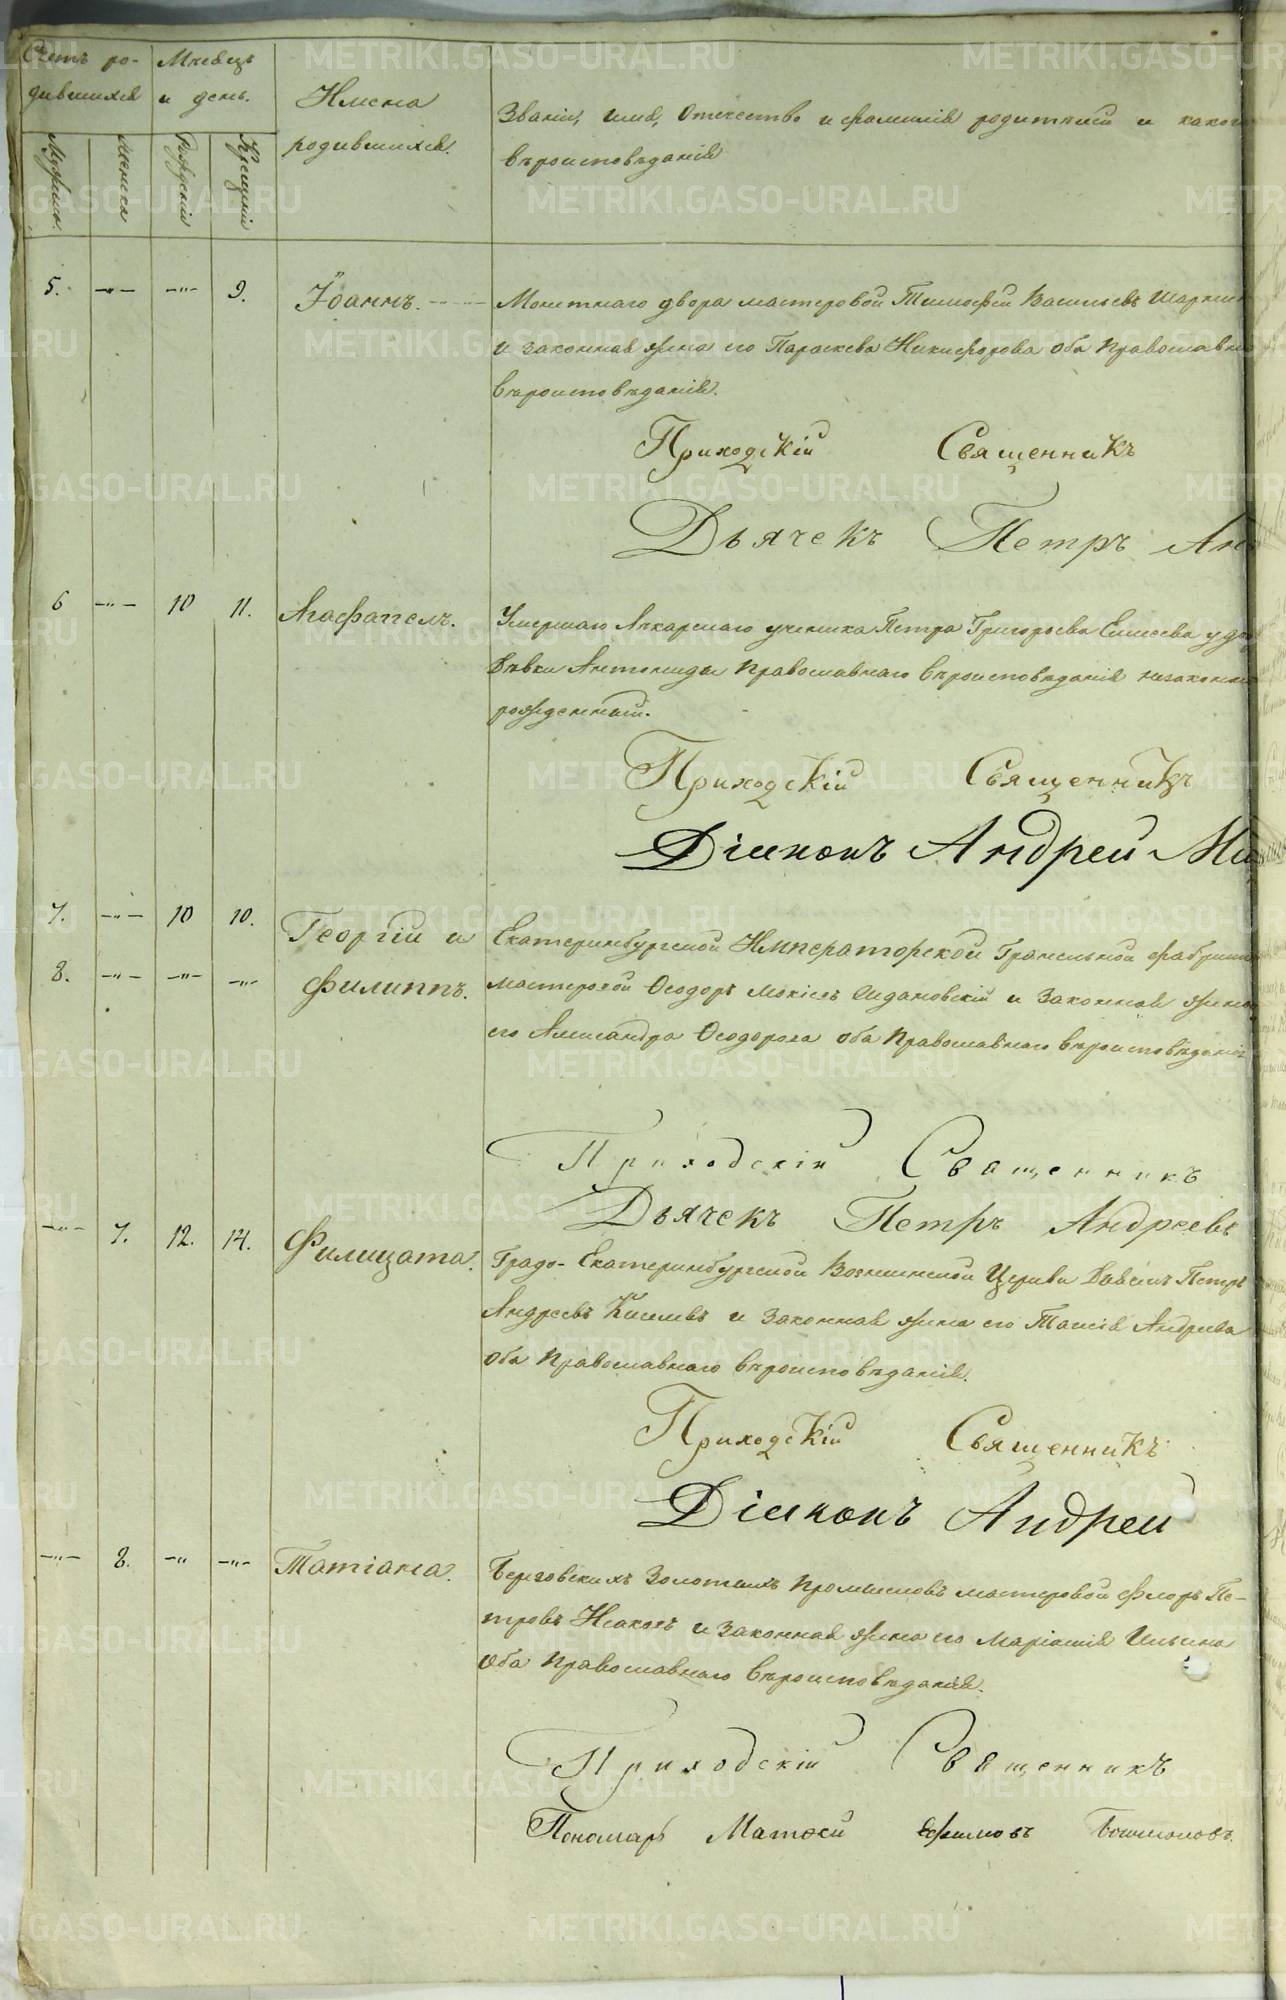 Счетъ ро-
дившихся
Мѣсяцъ
и день.
Имена
родившихся.
Званіе, имя, отечество и фамилія родителей и какого
вѣроисповѣданія
Мужеска.
Женска
Рожденія
Крещенія
5. —"— —"— 9. Іоаннъ. Монетнаго двора мастеровой Тимофей Васильевъ
и законная жена его Параскева Никифорова оба Православнаго
вѣроисповѣданія.
Приходскій Священникъ
Дьячекъ Петръ Анд
6 —"— 10 11. Агафангелъ. Умершаго Лѣкарскаго ученика Петра Григорьева Елисеева у
дѣвки Антониды Православнаго вѣроисповѣданія незаконно
рожденный.
Приходскій Священникъ
Діаконъ Андрей Ми
7. —"— 10 10. Георгій и Екатеринбургской Императорской Гранильной фабрики
8. —"— —"— —"— Филиппъ. мастеровой Ѳеодоръ и Законная жена
его Александра Ѳеодорова оба Православнаго вѣроисповѣданія
Приходскій Священникъ
Дьячекъ Петръ Андреевъ
—"— 7. 12. 14. Филицата. Градо-Екатеринбургской Вознесенской Церкви Петръ
Андреевъ Киселевъ и Законная жена его Таисія Андреева
оба Православнаго вѣроисповѣданія.
Приходскій Священникъ
Діаконъ Андрей
—"— 8. —" —"— Татіана. Березовскихъ Золотыхъ Промысловъ мастеровой Флоръ Пе-
тровъ и Законная жена его Маріамія Ильина
Оба Православнаго вѣроисповѣданія.
Приходскій Священникъ
Пономарь Матѳей Ефимовъ
METRIKI.GASO-URAL.RU